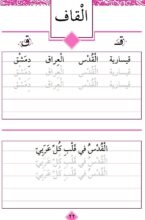 الْقاف
قـ ـق
قيسارية الْقُدْس الْعِراق دِمَشْق
قيسارية الْقُدْس الْعِراق دِمَشْق
الْقُدْسُ في قَلْبِ كُلِّ عَرَبِيّ
الْقُدْسُ في قَلْبِ كُلِّ عَرَبِيّ